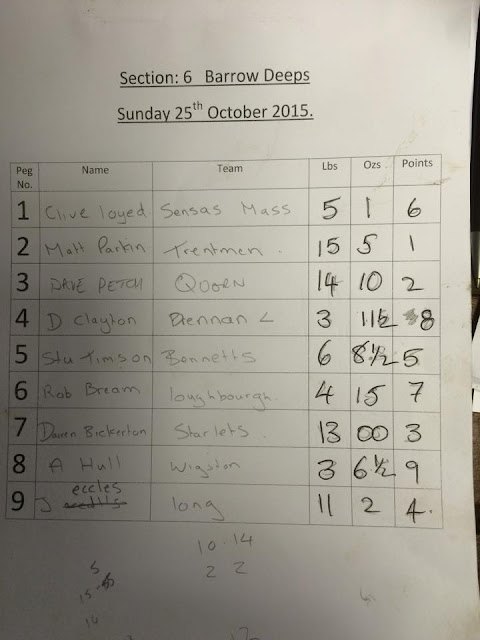 Section: 6 Barrow Deeps
Sunday 25th October 2015.
Peg No. Name Team Lbs Ozs Points
1 Clive loyed Sensas Mass 5 1 6
2 Matt Parkin Trentmen. 15 5 1
3 DAVE PETCH QUORN 14 10 2
4 D Clayton Brennan L 3 11½ 8
5 Stu Timson Bennetts 6 8½ 5
6 Rob Bream loughbourgh. 4 15 7
7 Darren Bickerton Starlets. 13 00 3
8 A Hull Wigston 3 6½ 9
9 J eccles long 11 2 4.
10.14
2 2
5
15
14